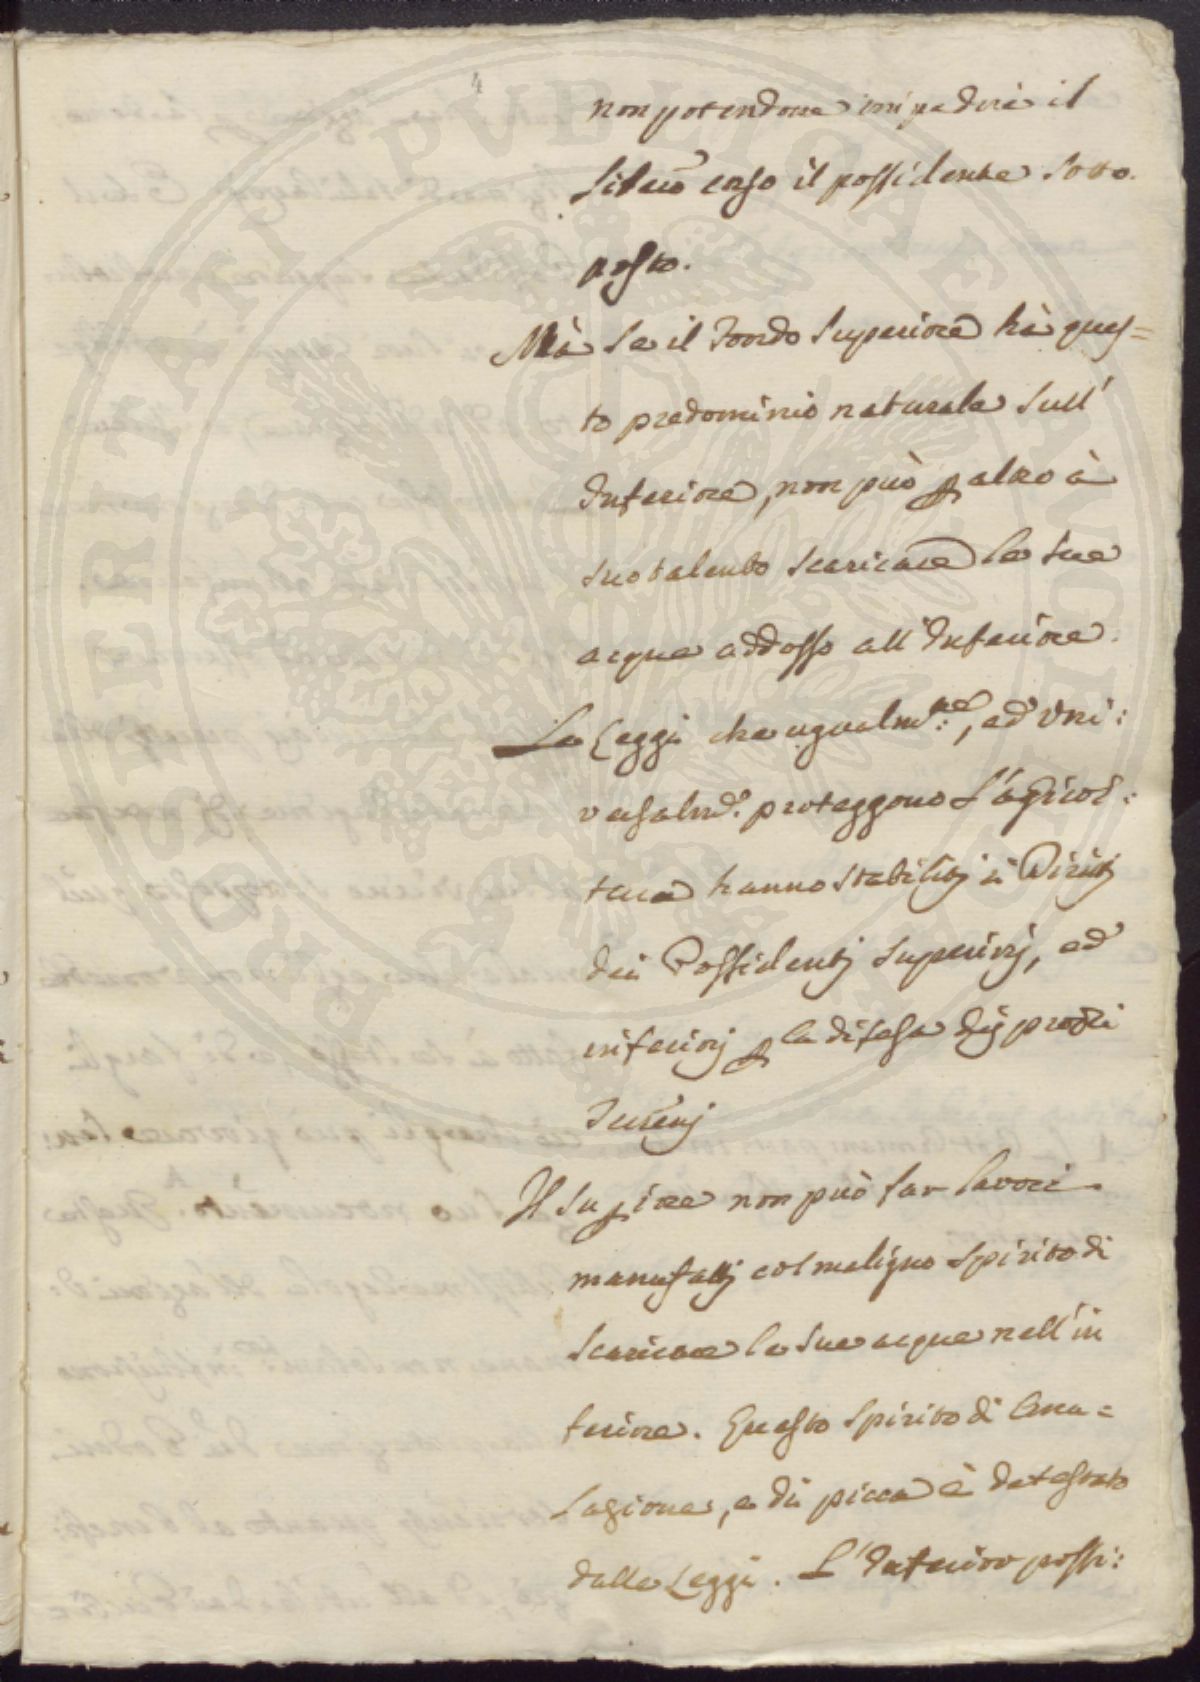 4
PROSPERITATI PVBLICAE AVGENDAE
non potendone impedire il
libero corso il possidente sotto.
posto.
Mà se il Fondo Superiore hà ques=
to predominio naturale sull'
Inferiore, non può per altro à
suo talento scaricare le sue
acque addosso all'Inferiore.
Le Leggi che ugualm:te, ed uni:
versalm:e proteggono l'agricol:
tura hanno stabilitj i Dirittj
dei Possidentj Superiorj, ed
inferiorj per la difesa dej proprj
Terrenj
Il Superiore non può far lavori
manufattj col maligno spirito di
scaricare le sue acque nell'in
feriore. Questo spirito di Emu=
lazione, e di picca è detestato
dalle Leggi. L'Inferior possi: